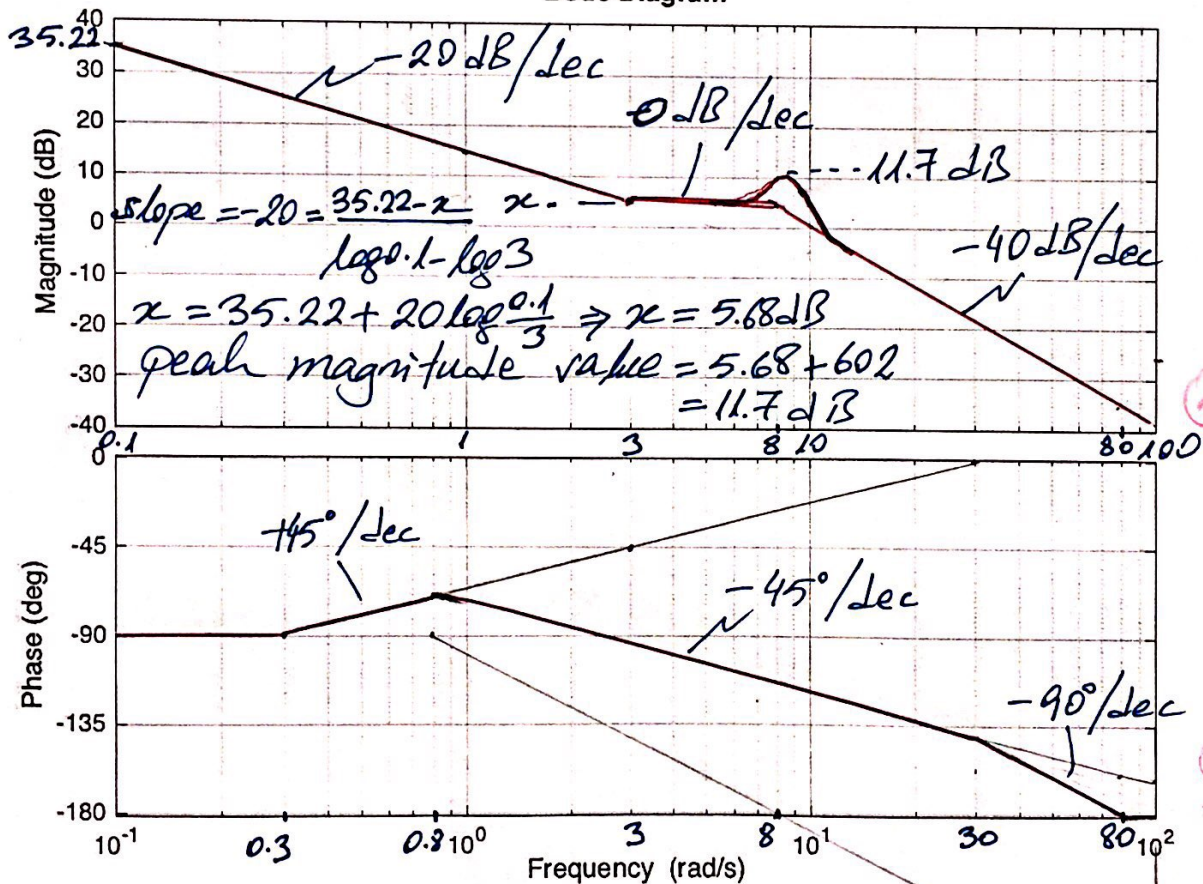 Bode Diagram
40
35.22
30
20
10
0
-10
-20
-30
-40
Magnitude (dB)
-20 dB/dec
0 dB/dec
---11.7 dB
slope = -20 = 35.22-x
log0.1-log3
x.
-40 dB/dec
x = 35.22 + 20 log 0.1/3 ⇒ x = 5.68 dB
peak magnitude value = 5.68+602
= 11.7 dB
0.1 1 3 8 10 80 100
0
-45
-90
-135
-180
Phase (deg)
+45°/dec
-45°/dec
-90°/dec
10⁻¹ 0.3 0.8 10⁰ 3 8 10¹ 30 80 10²
Frequency (rad/s)